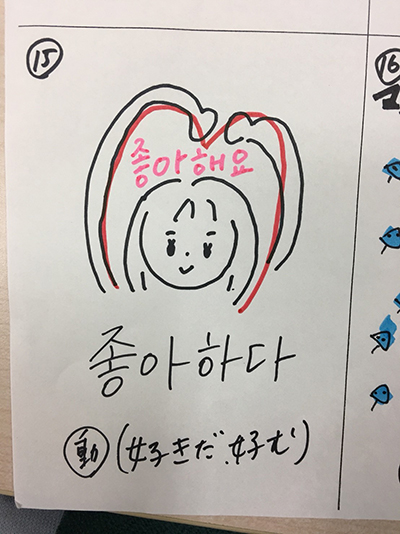 ⑮
좋아해요
좋아하다
動 (好きだ.好む)
⑯